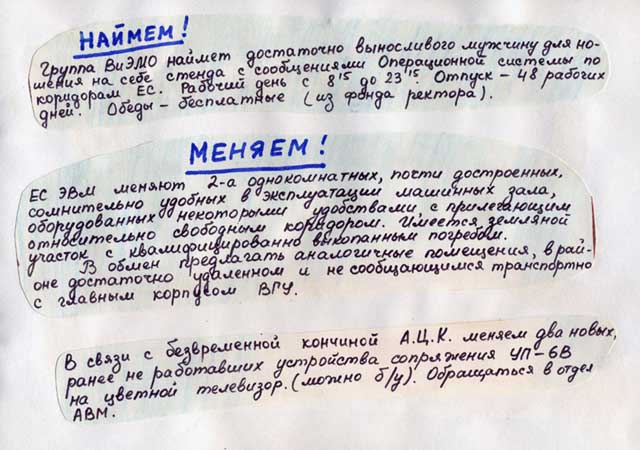 НАЙМЕМ!
Группа ВиЭМО наймет достаточно выносливого мужчину для но-
шения на себе стенда с сообщениями Операционной системы по
коридорам ЕС. Рабочий день с 8 15 до 23 15. Отпуск - 48 рабочих
дней. Обеды - бесплатные (из фонда ректора).
МЕНЯЕМ!
ЕС ЭВМ меняют 2-а однокомнатных, почти достроенных,
сомнительно удобных в эксплуатации машинных зала,
оборудованных некоторыми удобствами с прилегающим
относительно свободным коридором. Имеется земляной
участок с квалифицированно выкопанным погребом.
В обмен предлагать аналогичные помещения, в рай-
оне достаточно удаленном и не сообщающимся транспортно
с главным корпусом ВГУ.
В связи с безвременной кончиной А.Ц.К. меняем два новых,
ранее не работавших устройства сопряжения УП-6В
на цветной телевизор. (можно б/у). Обращаться в отдел
АВМ.